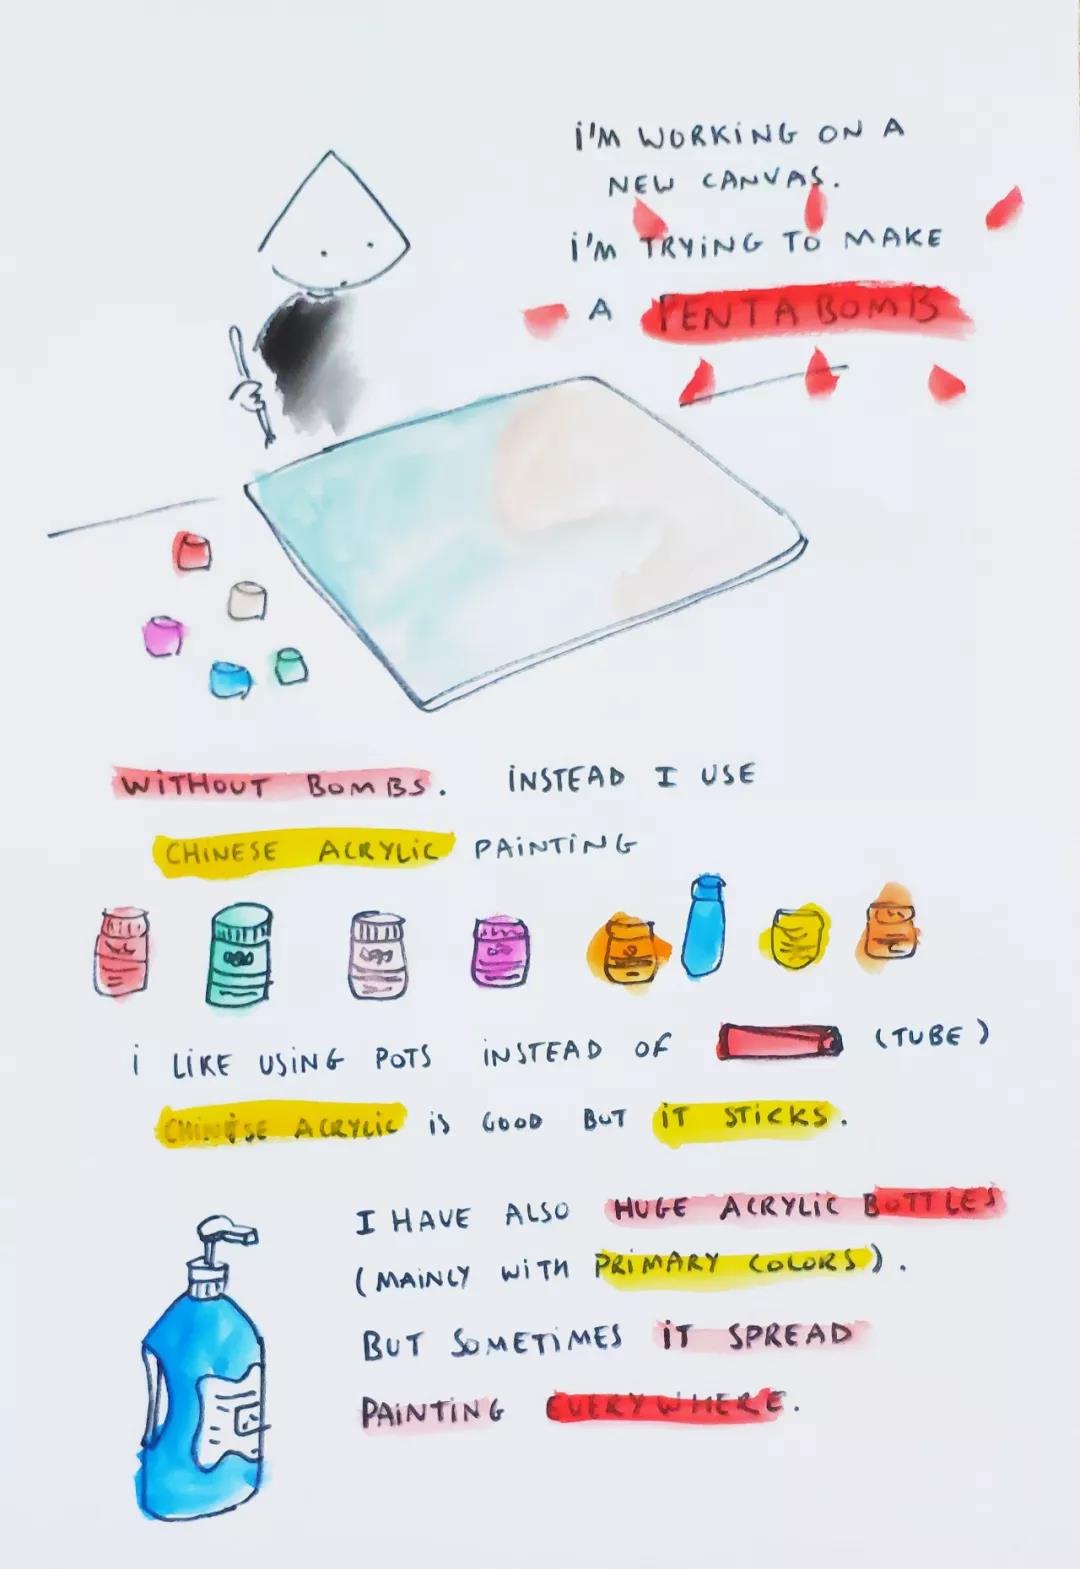 i'M WORKiNG ON A
NEW CANVAS.
i'M TRYiNG TO MAKE
A PENTABOMB
WiTHOUT BOMBS. iNSTEAD I USE
CHiNESE ACRYLiC PAiNTiNG
i LiKE USiNG POTS iNSTEAD OF (TUBE)
CHiNESE ACRYLiC iS GOOD BUT iT STiCKS.
I HAVE ALSO HUGE ACRYLiC BOTTLES
(MAiNLY WiTH PRiMARY COLORS).
BUT SOMETiMES iT SPREAD
PAiNTiNG EVERYWHERE.